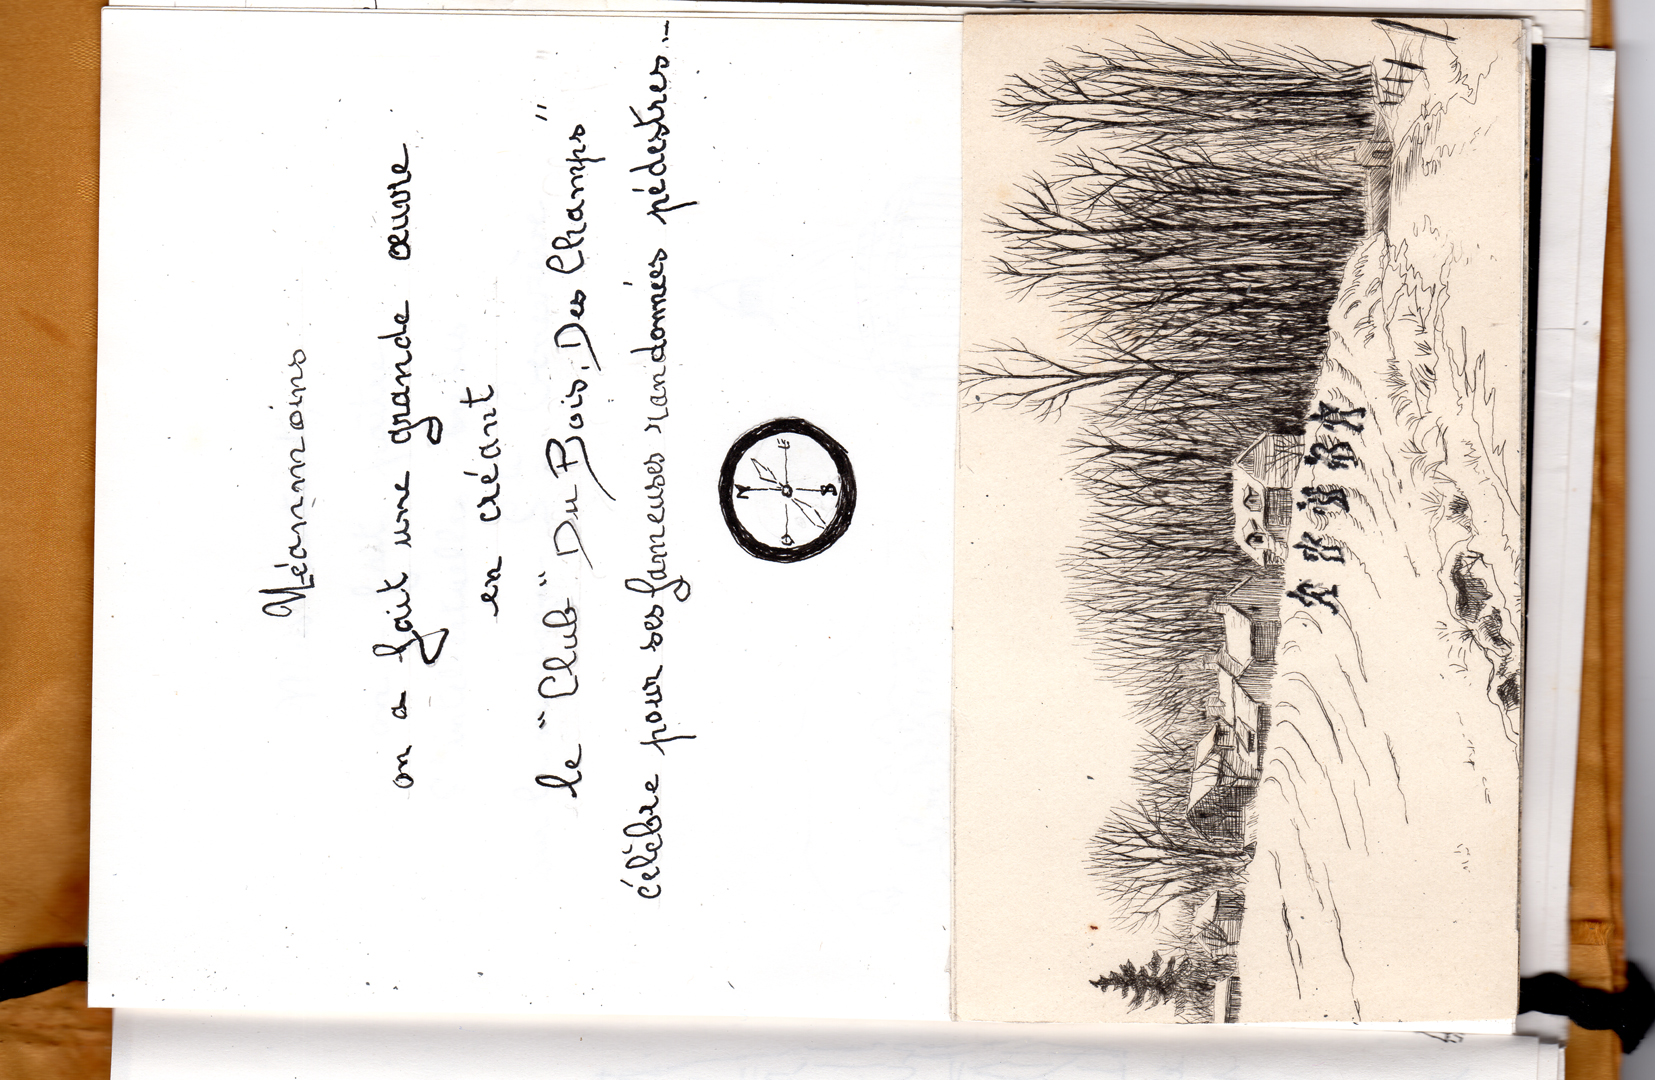 Néanmoins
on a fait une grande œuvre
en créant
le "Club" Du Bois, Des Champs"
célèbre pour ses fameuses randonnées pédestres.-
N
O E
S